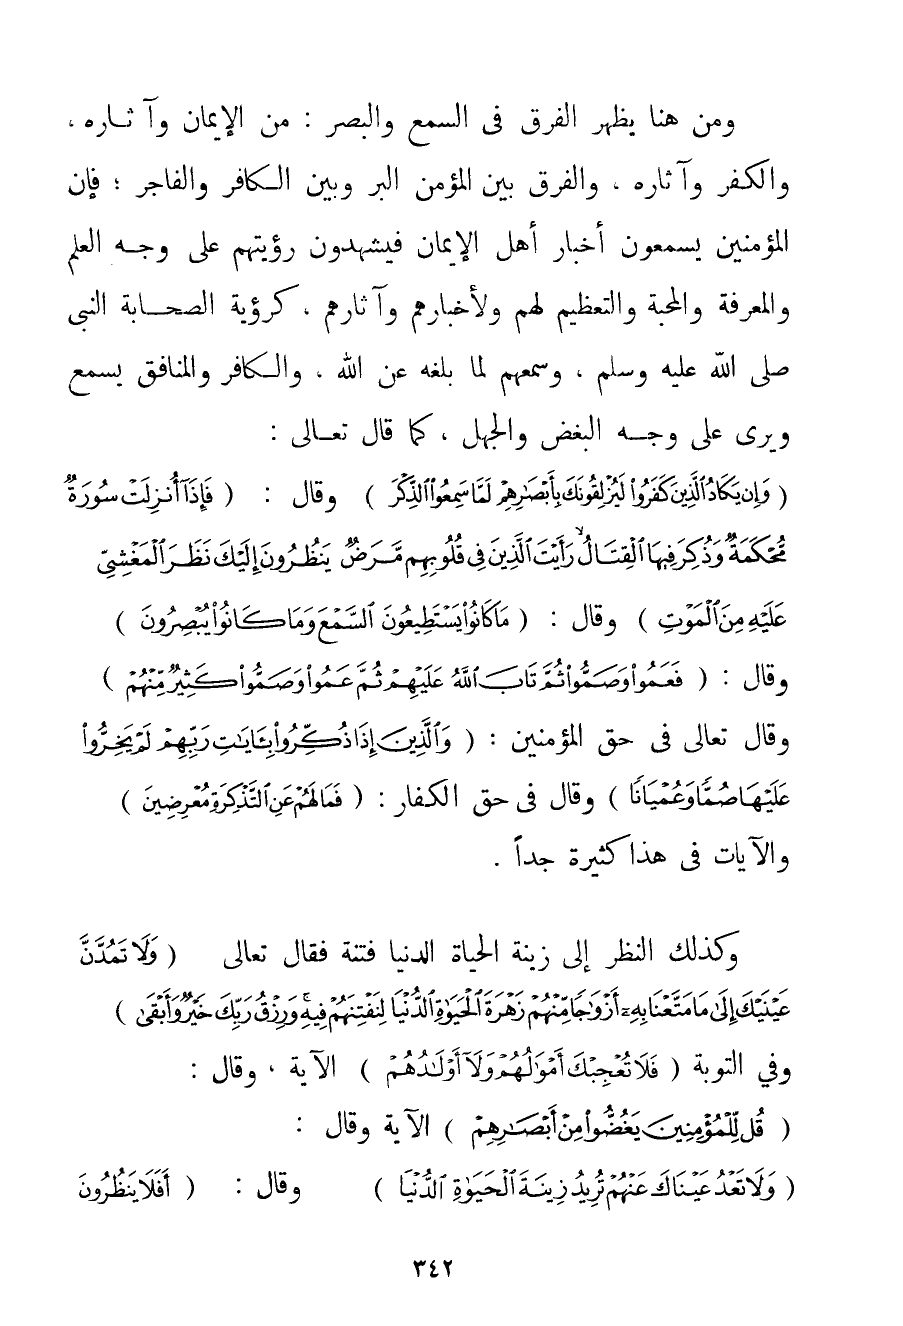 ومن هنا يظهر الفرق فى السمع والبصر : من الإيمان وآثاره ،
والكفر وآثاره ، والفرق بين المؤمن البر وبين الكافر والفاجر ؛ فإن
المؤمنين يسمعون أخبار أهل الإيمان فيشهدون رؤيتهم على وجه العلم
والمعرفة والمحبة والتعظيم لهم ولأخبارهم وآثارهم ، كرؤية الصحابة النبى
صلى الله عليه وسلم ، وسمعهم لما بلغه عن الله ، والكافر والمنافق يسمع
ويرى على وجه البغض والجهل ، كما قال تعالى :
( وَإِن يَكَادُ ٱلَّذِينَ كَفَرُوا۟ لَيُزْلِقُونَكَ بِأَبْصَٰرِهِمْ لَمَّا سَمِعُوا۟ ٱلذِّكْرَ ) وقال : ( فَإِذَآ أُنزِلَتْ سُورَةٌ
مُّحْكَمَةٌ وَذُكِرَ فِيهَا ٱلْقِتَالُ ۙ رَأَيْتَ ٱلَّذِينَ فِى قُلُوبِهِم مَّرَضٌ يَنظُرُونَ إِلَيْكَ نَظَرَ ٱلْمَغْشِىِّ
عَلَيْهِ مِنَ ٱلْمَوْتِ ) وقال : ( مَا كَانُوا۟ يَسْتَطِيعُونَ ٱلسَّمْعَ وَمَا كَانُوا۟ يُبْصِرُونَ )
وقال : ( فَعَمُوا۟ وَصَمُّوا۟ ثُمَّ تَابَ ٱللَّهُ عَلَيْهِمْ ثُمَّ عَمُوا۟ وَصَمُّوا۟ كَثِيرٌ مِّنْهُمْ )
وقال تعالى فى حق المؤمنين : ( وَٱلَّذِينَ إِذَا ذُكِّرُوا۟ بِـَٔايَٰتِ رَبِّهِمْ لَمْ يَخِرُّوا۟
عَلَيْهَا صُمًّا وَعُمْيَانًا ) وقال فى حق الكفار : ( فَمَا لَهُمْ عَنِ ٱلتَّذْكِرَةِ مُعْرِضِينَ )
والآيات فى هذا كثيرة جداً .
وكذلك النظر إلى زينة الحياة الدنيا فتنة فقال تعالى ( وَلَا تَمُدَّنَّ
عَيْنَيْكَ إِلَىٰ مَا مَتَّعْنَا بِهِۦٓ أَزْوَٰجًا مِّنْهُمْ زَهْرَةَ ٱلْحَيَوٰةِ ٱلدُّنْيَا لِنَفْتِنَهُمْ فِيهِ ۚ وَرِزْقُ رَبِّكَ خَيْرٌ وَأَبْقَىٰ )
وفي التوبة ( فَلَا تُعْجِبْكَ أَمْوَٰلُهُمْ وَلَآ أَوْلَٰدُهُمْ ) الآية ، وقال :
( قُل لِّلْمُؤْمِنِينَ يَغُضُّوا۟ مِنْ أَبْصَٰرِهِمْ ) الآية وقال :
( وَلَا تَعْدُ عَيْنَاكَ عَنْهُمْ تُرِيدُ زِينَةَ ٱلْحَيَوٰةِ ٱلدُّنْيَا ) وقال : ( أَفَلَا يَنظُرُونَ
٣٤٢